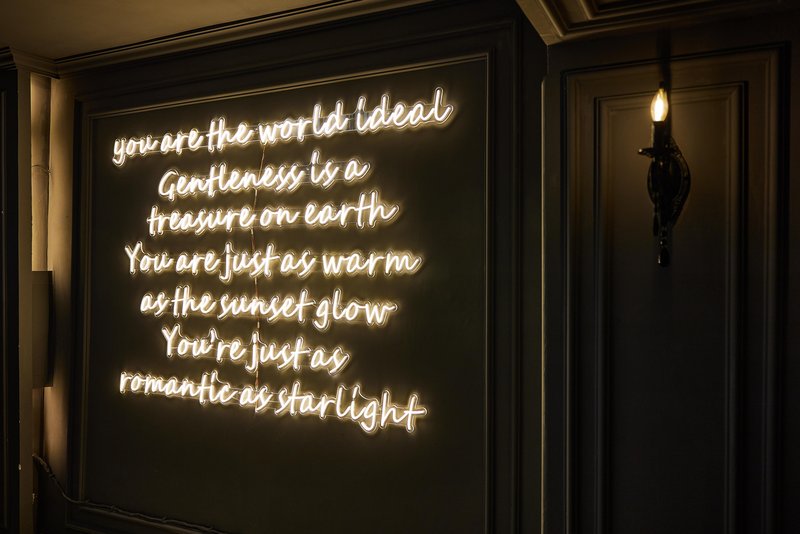 you are the world ideal
Gentleness is a
treasure on earth
You are just as warm
as the sunset glow
You're just as
romantic as starlight